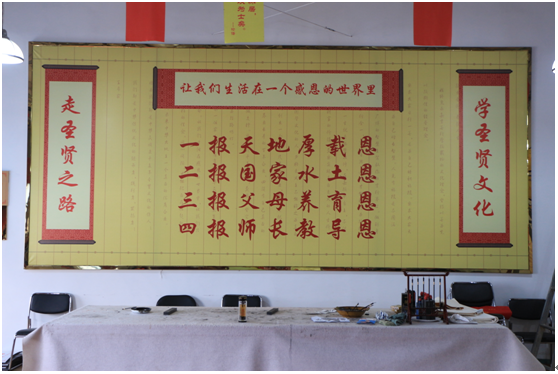 让我们生活在一个感恩的世界里
学圣贤文化
走圣贤之路
一报天地厚载恩
二报国家水土恩
三报父母养育恩
四报师长教导恩